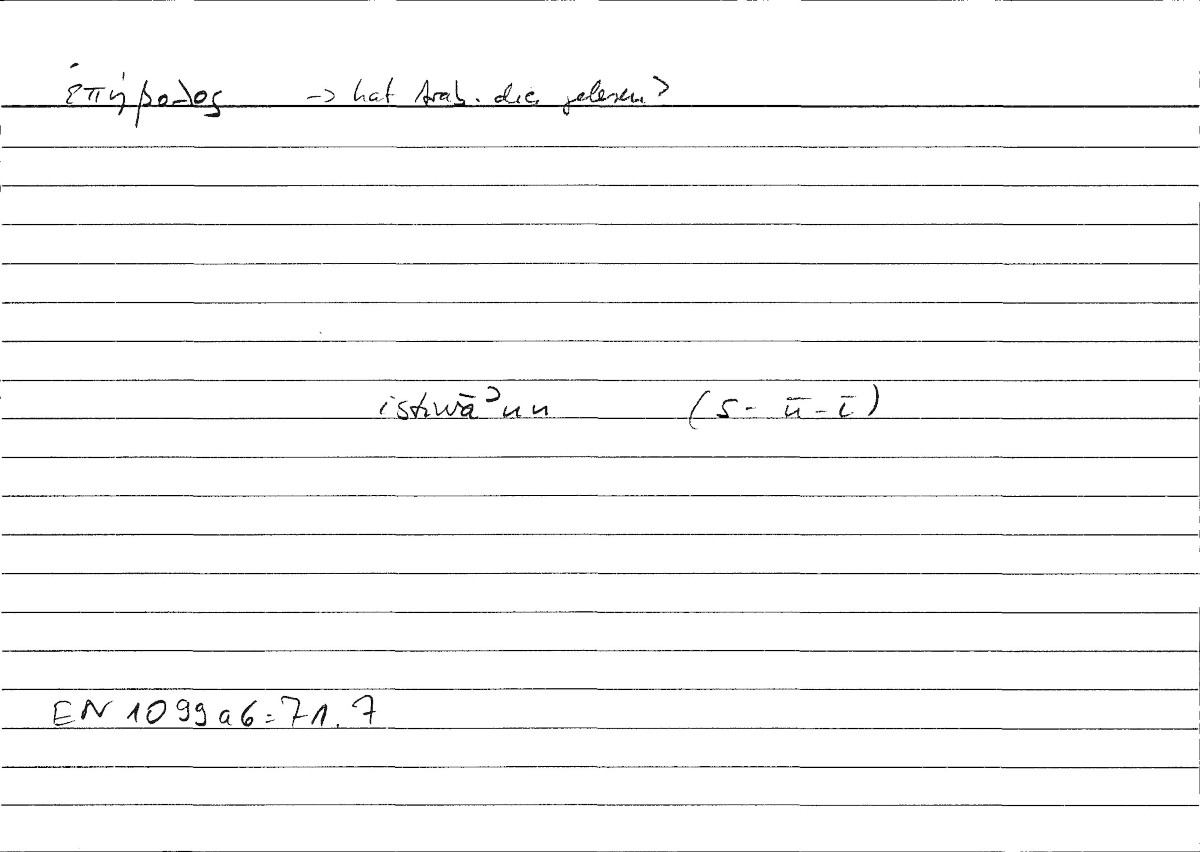 ἐπήβολος -> hat Arab. dies gelesen?
istiwāʾun (s- ū-ī)
EN 1099a6=71.7